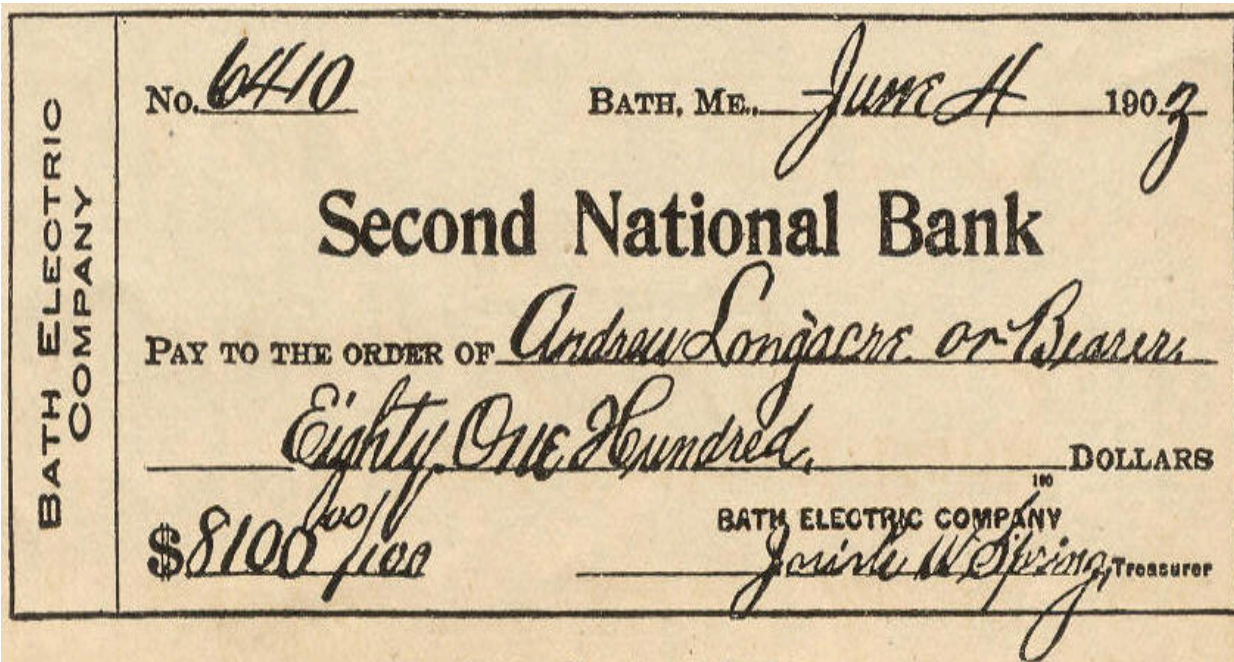 BATH ELECTRIC
COMPANY
No. 6410
BATH, ME., June 4 1903
Second National Bank
PAY TO THE ORDER OF Andrew Longacre or Bearer.
Eighty One Hundred, DOLLARS
190
$8100 00/100
BATH ELECTRIC COMPANY
Josiah W Spring, Treasurer